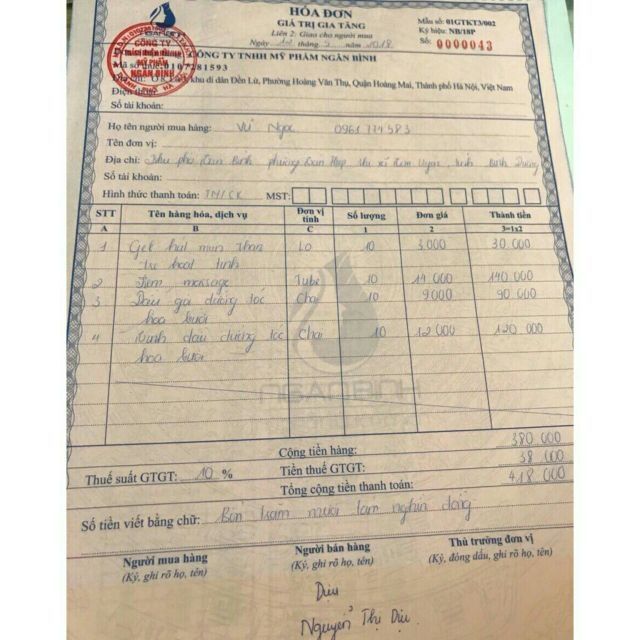 HÓA ĐƠN
GIÁ TRỊ GIA TĂNG
Liên 2: Giao cho người mua
Ngày tháng năm 2018
Mẫu số: 01GTKT3/002
Ký hiệu: NB/18P
Số: 0000043
CÔNG TY TNHH MỸ PHẨM NGÂN BÌNH
Mã số thuế: 0107281593
Địa chỉ: khu di dân Đền Lừ, Phường Hoàng Văn Thụ, Quận Hoàng Mai, Thành phố Hà Nội, Việt Nam
Điện thoại:
Số tài khoản:
CÔNG TY
MỸ PHẨM
NGÂN BÌNH
Họ tên người mua hàng: Vũ Ngọc 0961774583
Tên đơn vị:
Địa chỉ: Khu phố Bình phường thị xã Uyên, tỉnh Bình Dương
Số tài khoản:
Hình thức thanh toán: TM/CK MST:
STT Tên hàng hóa, dịch vụ Đơn vị tính Số lượng Đơn giá Thành tiền
A B C 1 2 3=1x2
1 Gel hút mụn than Lọ 10 3.000 30 000
tre hoạt tính
2 massage Tube 10 14 000 140.000
3 Dầu gội dưỡng tóc Chai 10 9000 90 000
hoa bưởi
4 Tinh dầu dưỡng tóc Chai 10 12000 120 000
hoa bưởi
NGANBINH
Cộng tiền hàng: 380 000
Thuế suất GTGT: 10 % Tiền thuế GTGT: 38 000
Tổng cộng tiền thanh toán: 418 000
Số tiền viết bằng chữ: Bốn trăm mười tám nghìn đồng
Người mua hàng
(Ký, ghi rõ họ, tên)
Người bán hàng
(Ký, ghi rõ họ, tên)
Thủ trưởng đơn vị
(Ký, đóng dấu, ghi rõ họ, tên)
Dịu
Nguyễn Thị Dịu